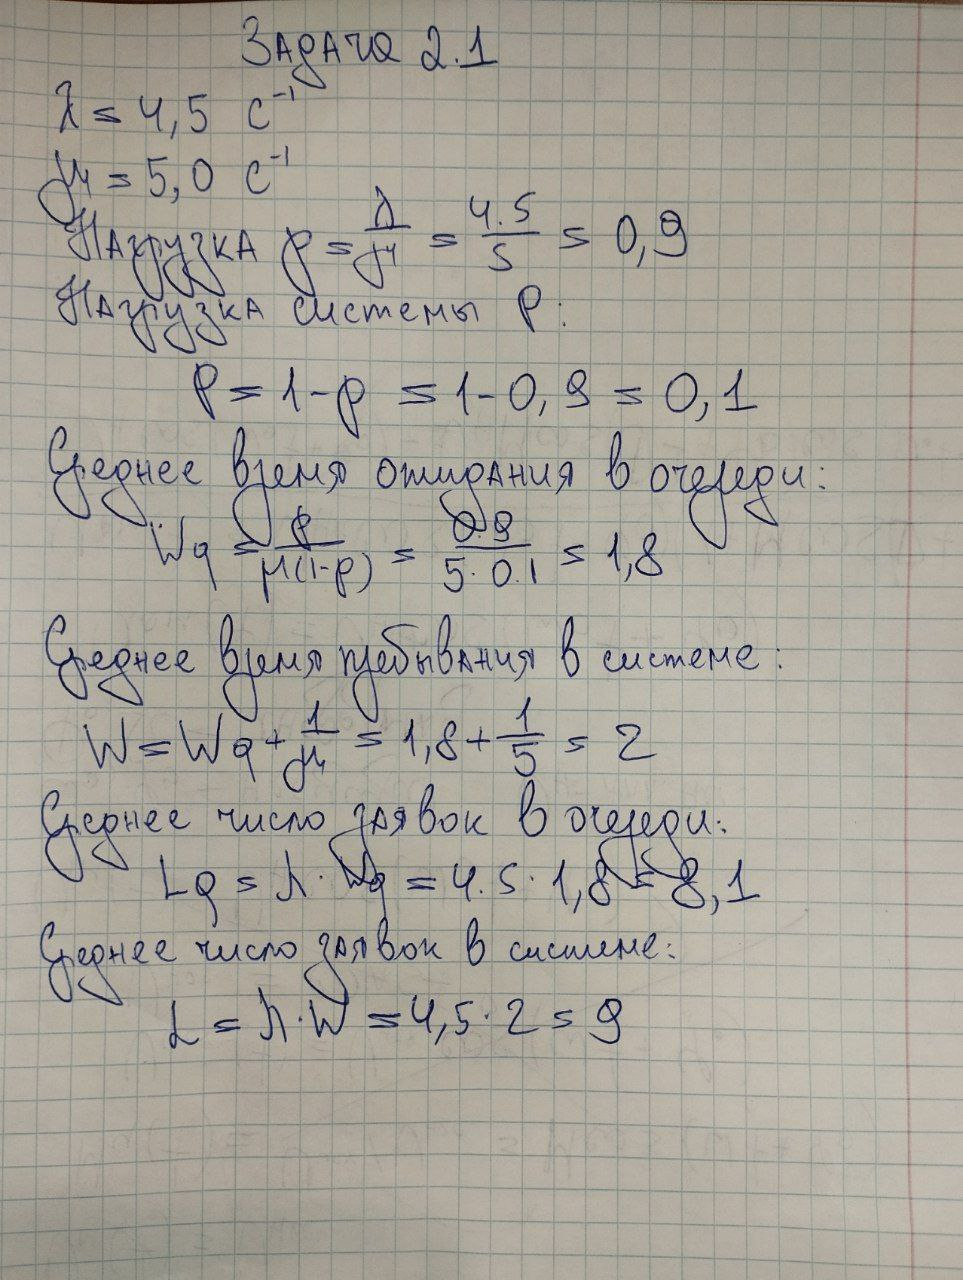 Задача 2.1
λ = 4,5 с⁻¹
μ = 5,0 с⁻¹
Нагрузка ρ = λ/μ = 4.5/5 = 0,9
Нагрузка системы P:
P = 1-ρ = 1-0,9 = 0,1
Среднее время ожидания в очереди:
Wq = ρ/μ(1-ρ) = 0.9/5·0.1 = 1,8
Среднее время пребывания в системе:
W = Wq + 1/μ = 1,8 + 1/5 = 2
Среднее число заявок в очереди:
Lq = λ·Wq = 4.5·1,8 = 8,1
Среднее число заявок в системе:
L = λ·W = 4,5·2 = 9